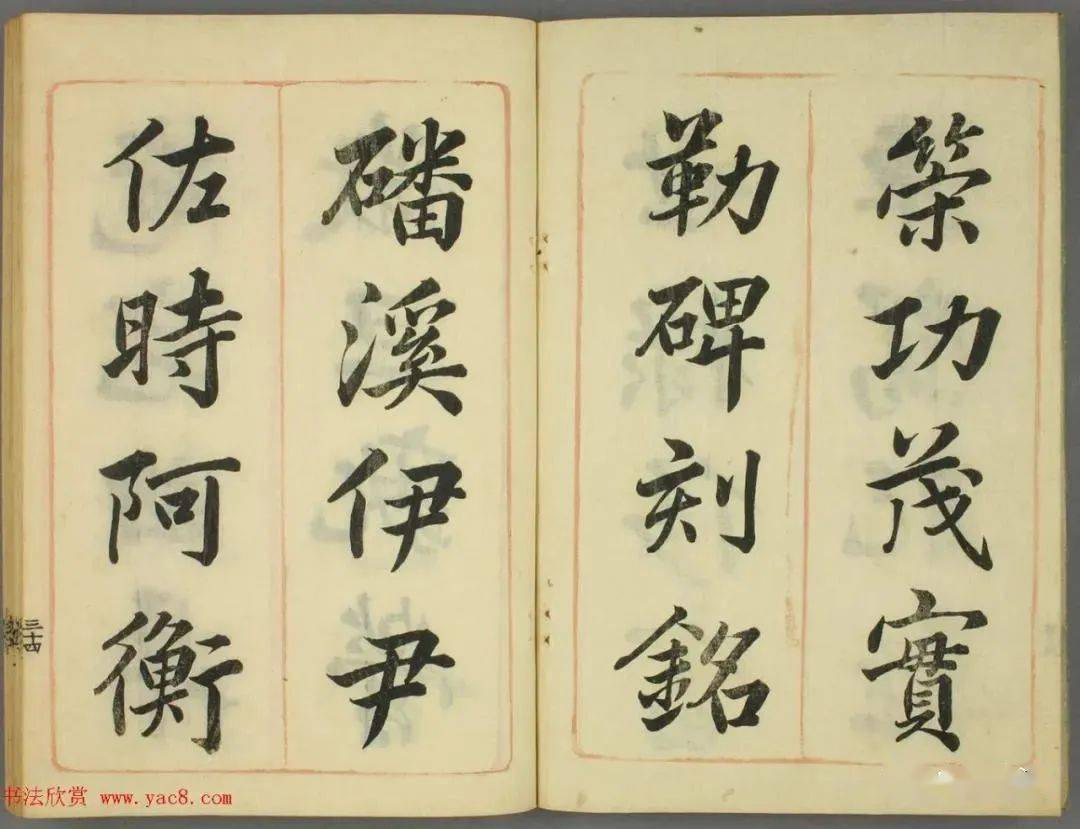 策功茂實
勒碑刻銘
磻溪伊尹
佐時阿衡
三十四
书法欣赏 www.yac8.com